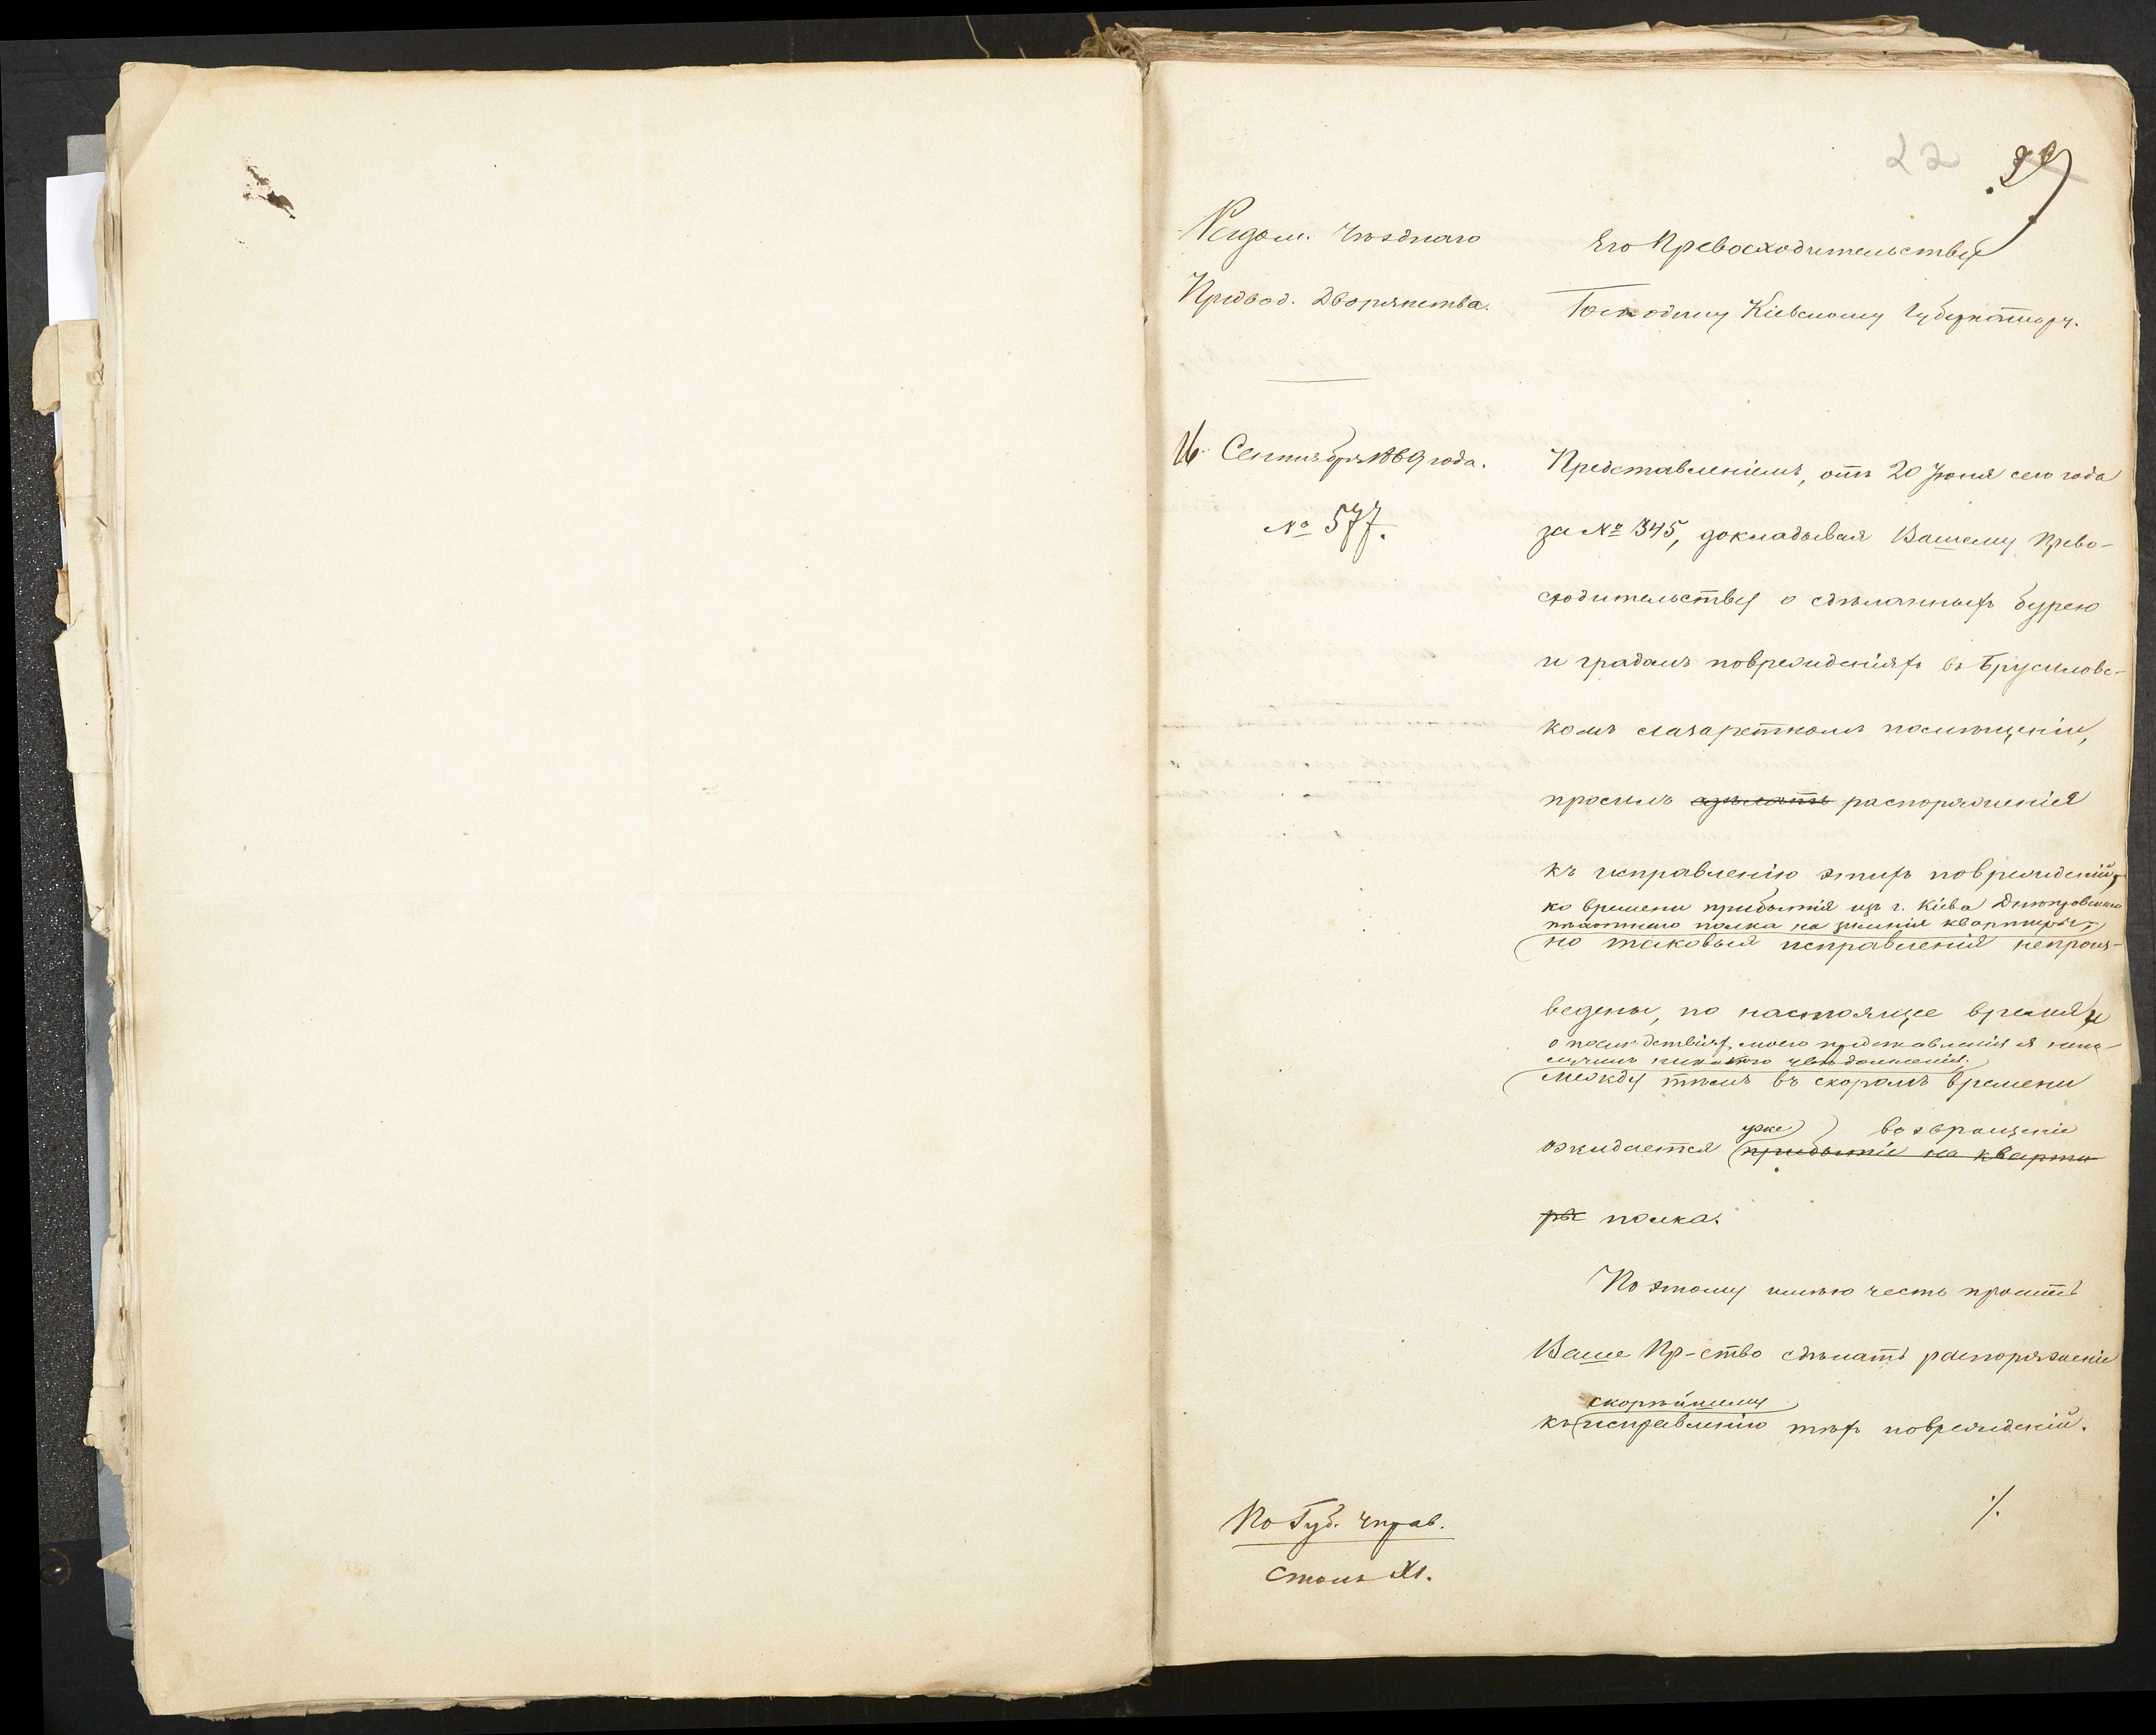 22
Радом. Уѣзднаго
Предвод. Дворянства.
16 Сентября 1869 года.
№ 577.
Его Превосходительству
Господину Кіевскому Губернатору.
Представленіемъ, отъ 20 Іюня сего года
за № 345, докладывая Вашему Прево-
сходительству о сдѣланныхъ бурею
и градомъ поврежденіяхъ въ Брусиловс-
комъ лазаретномъ помѣщеніи,
просилъ сдѣлать распоряженія
къ исправленію этихъ поврежденій,
ко времени прибытія изъ г. Кіева Днѣпровскаго
пѣхотнаго полка на зимнія квартиры,
но таковыя исправленія непроиз-
ведены, по настоящее время и
о послѣдствіяхъ моего представленія я непо-
лучилъ никакого увѣдомленія.
Между тѣмъ въ скоромъ времени
уже возвращеніе
ожидается прибытіе на кварти
ры полка.
По этому имѣю честь просить
Ваше Пр-ство сдѣлать распоряженіе
скорѣйшему
къ исправленію тѣхъ поврежденій.
По Губ. Управ.
Столъ XI.